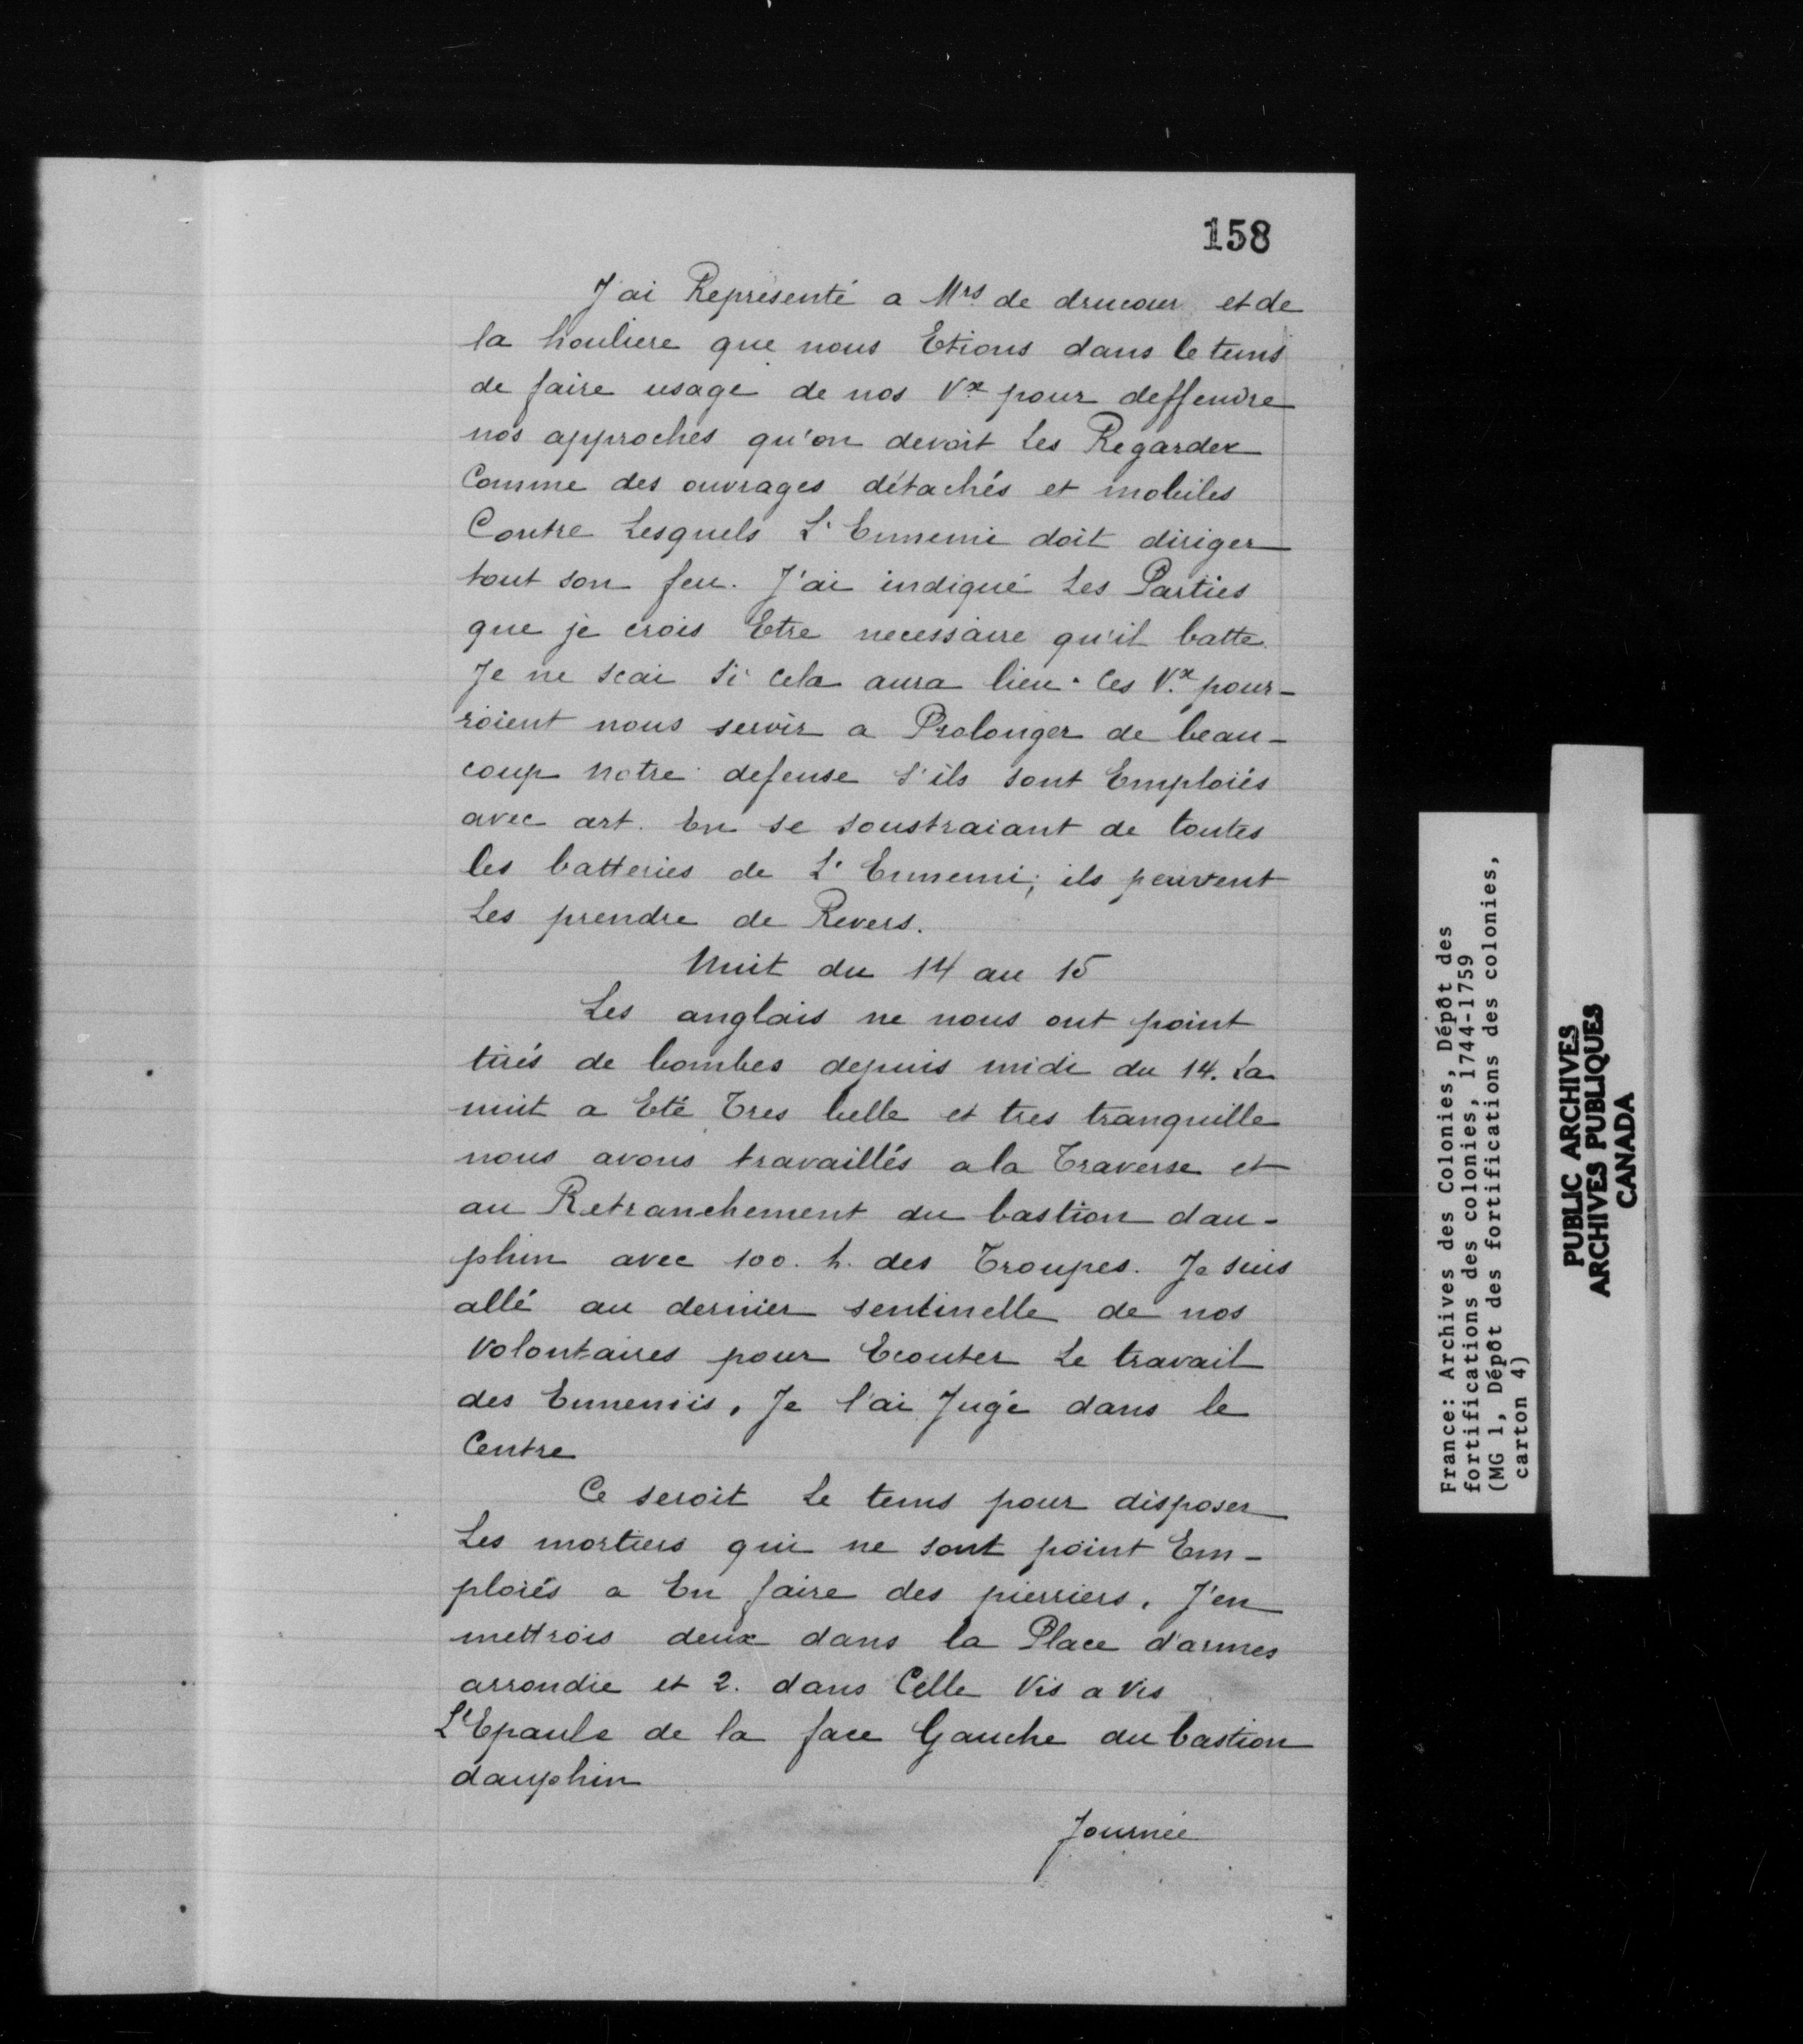 158
J'ai Représenté a Mrs de drucour et de
la houliere que nous Etions dans le tems
de faire usage de nos Vx pour deffendre
nos approches qu'on devoit Les Regarder
Comme des ouvrages détachés et mobiles
Contre Lesquels L'Ennemi doit diriger
tout son feu. J'ai indiqué Les Parties
que je crois Etre necessaire qu'il batte.
Je ne scai Si cela aura lieu. Ces Vx pour-
roient nous servir a Prolonger de beau-
coup Notre defense S'ils sont Emploiés
avec art. En se soustraiant de toutes
les batteries de L'Ennemi; ils peuvent
Les prendre de Revers.
Nuit du 14 au 15
Les anglais ne nous ont point
tirés de bombes depuis midi du 14. La
nuit a Eté Tres belle et tres tranquille
nous avons travaillés a la Traverse et
au Retranchement du bastion dau-
phin avec 100. h. des Troupes. Je suis
allé au dernier sentinelle de nos
Volontaires pour Ecouter Le travail
des Ennemis, Je l'ai Jugé dans le
Centre
Ce seroit Le tems pour disposer
Les mortiers qui ne sont point Em-
ploiés a En faire des pierriers, J'en
mettrois deux dans la Place d'armes
arrondie et 2. dans Celle Vis a Vis
L'Epaule de la face Gauche du bastion
dauphin
Journée
France: Archives des Colonies, Dépôt des
fortifications des colonies, 1744-1759
(MG 1, Dépôt des fortifications des colonies,
carton 4)
PUBLIC ARCHIVES
ARCHIVES PUBLIQUES
CANADA